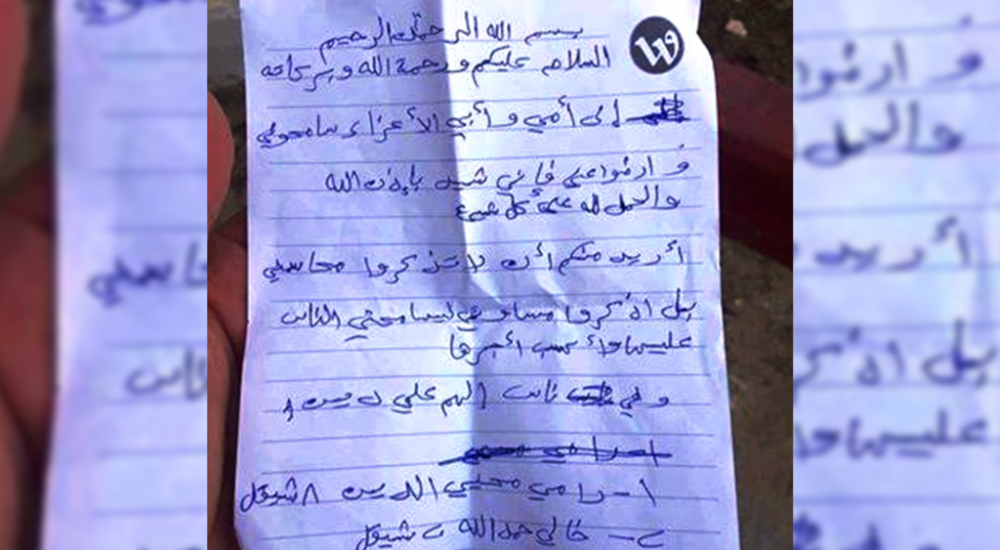 بسم الله الرحمن الرحيم
السلام عليكم ورحمة الله وبركاته
إلى أمي و أبي الأعزاء سامحوني
و ارضوا عني فإني شهيد بإذن الله
والحمل لله على كل شيء
أريد منكم أن لا تذكروا محاسني
بل اذكروا مساوئي ليسامحني الناس
عليها وأكسب أجرها
و في ناس إلهم علي دين
١- رامي محيي الدين ٨ شيقل
٢- خالي حمد الله ٢ شيقل